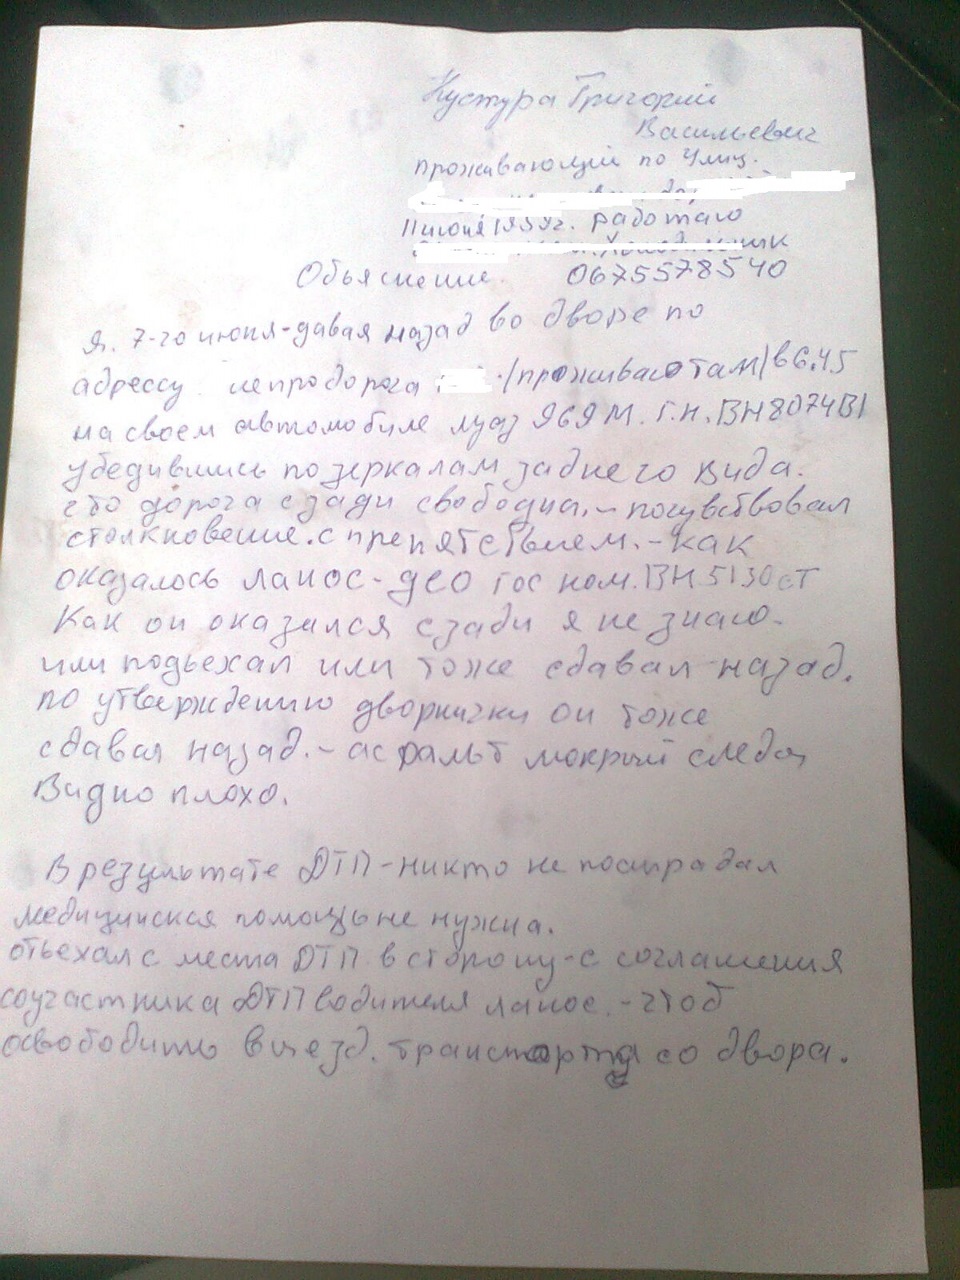 Кустура Григорий
Васильевич
проживающий по улиц.
11 июня 1959г. работаю
Обьяснение. 0675578540
Я. 7-го июня-давая назад во дворе по
адрессу. /проживаю там/ в 6.45
на своем автомобиле луаз 969М. г.н. ВН8074ВІ
убедившись по зеркалам заднего вида.
что дорога сзади свободна. - почувствовал
столкновение. с препятствием. - как
оказалось ланос-део гос ном. ВН5130СТ
Как он оказался сзади я не знаю.
или подьехал или тоже сдавал назад.
по утверждению дворнички он тоже
сдавал назад. - асфальт мокрый следы
видно плохо.
В результате ДТП-никто не пострадал
медицинская помощь не нужна.
отьехал с места ДТП в сторону-с соглашения
соучастника ДТП водителя ланос. - чтоб
освободить выезд. транспорта со двора.